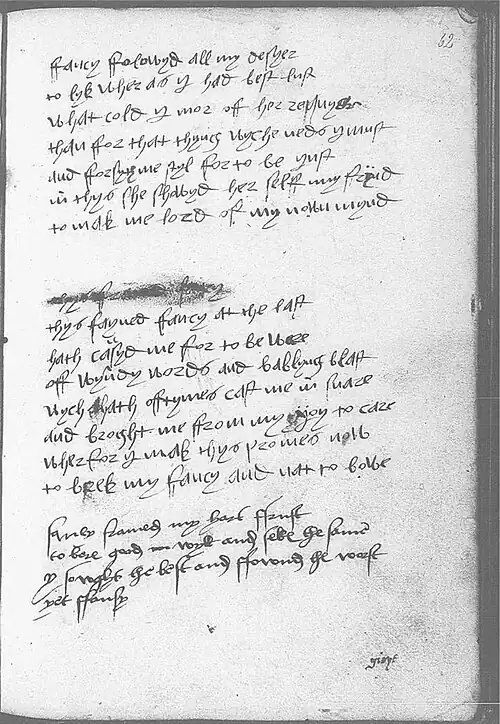 62
ffancy ffolowyd all my desyer
to lyk wher as y had best lust
what cold y mor off her requyer
than for that thyng wyche neds y must
and forsyt me styl for to be just
in thys she shewyd her self my frynd
to mak me lord of my nown mynd
thys fayned fancy at the last
hath casyd me for to be ware
off wyndy words and bablyng blast
wych hath offtymes cast me in snare
and broght me ffrom my joy to care
wherfor y mak thys promes now
to brek my ffancy and nat to bowe
fancy framed my hart ffrust
to bere good wyll and seke the same
y sowght the best and ffownd the worst
yet ffansy